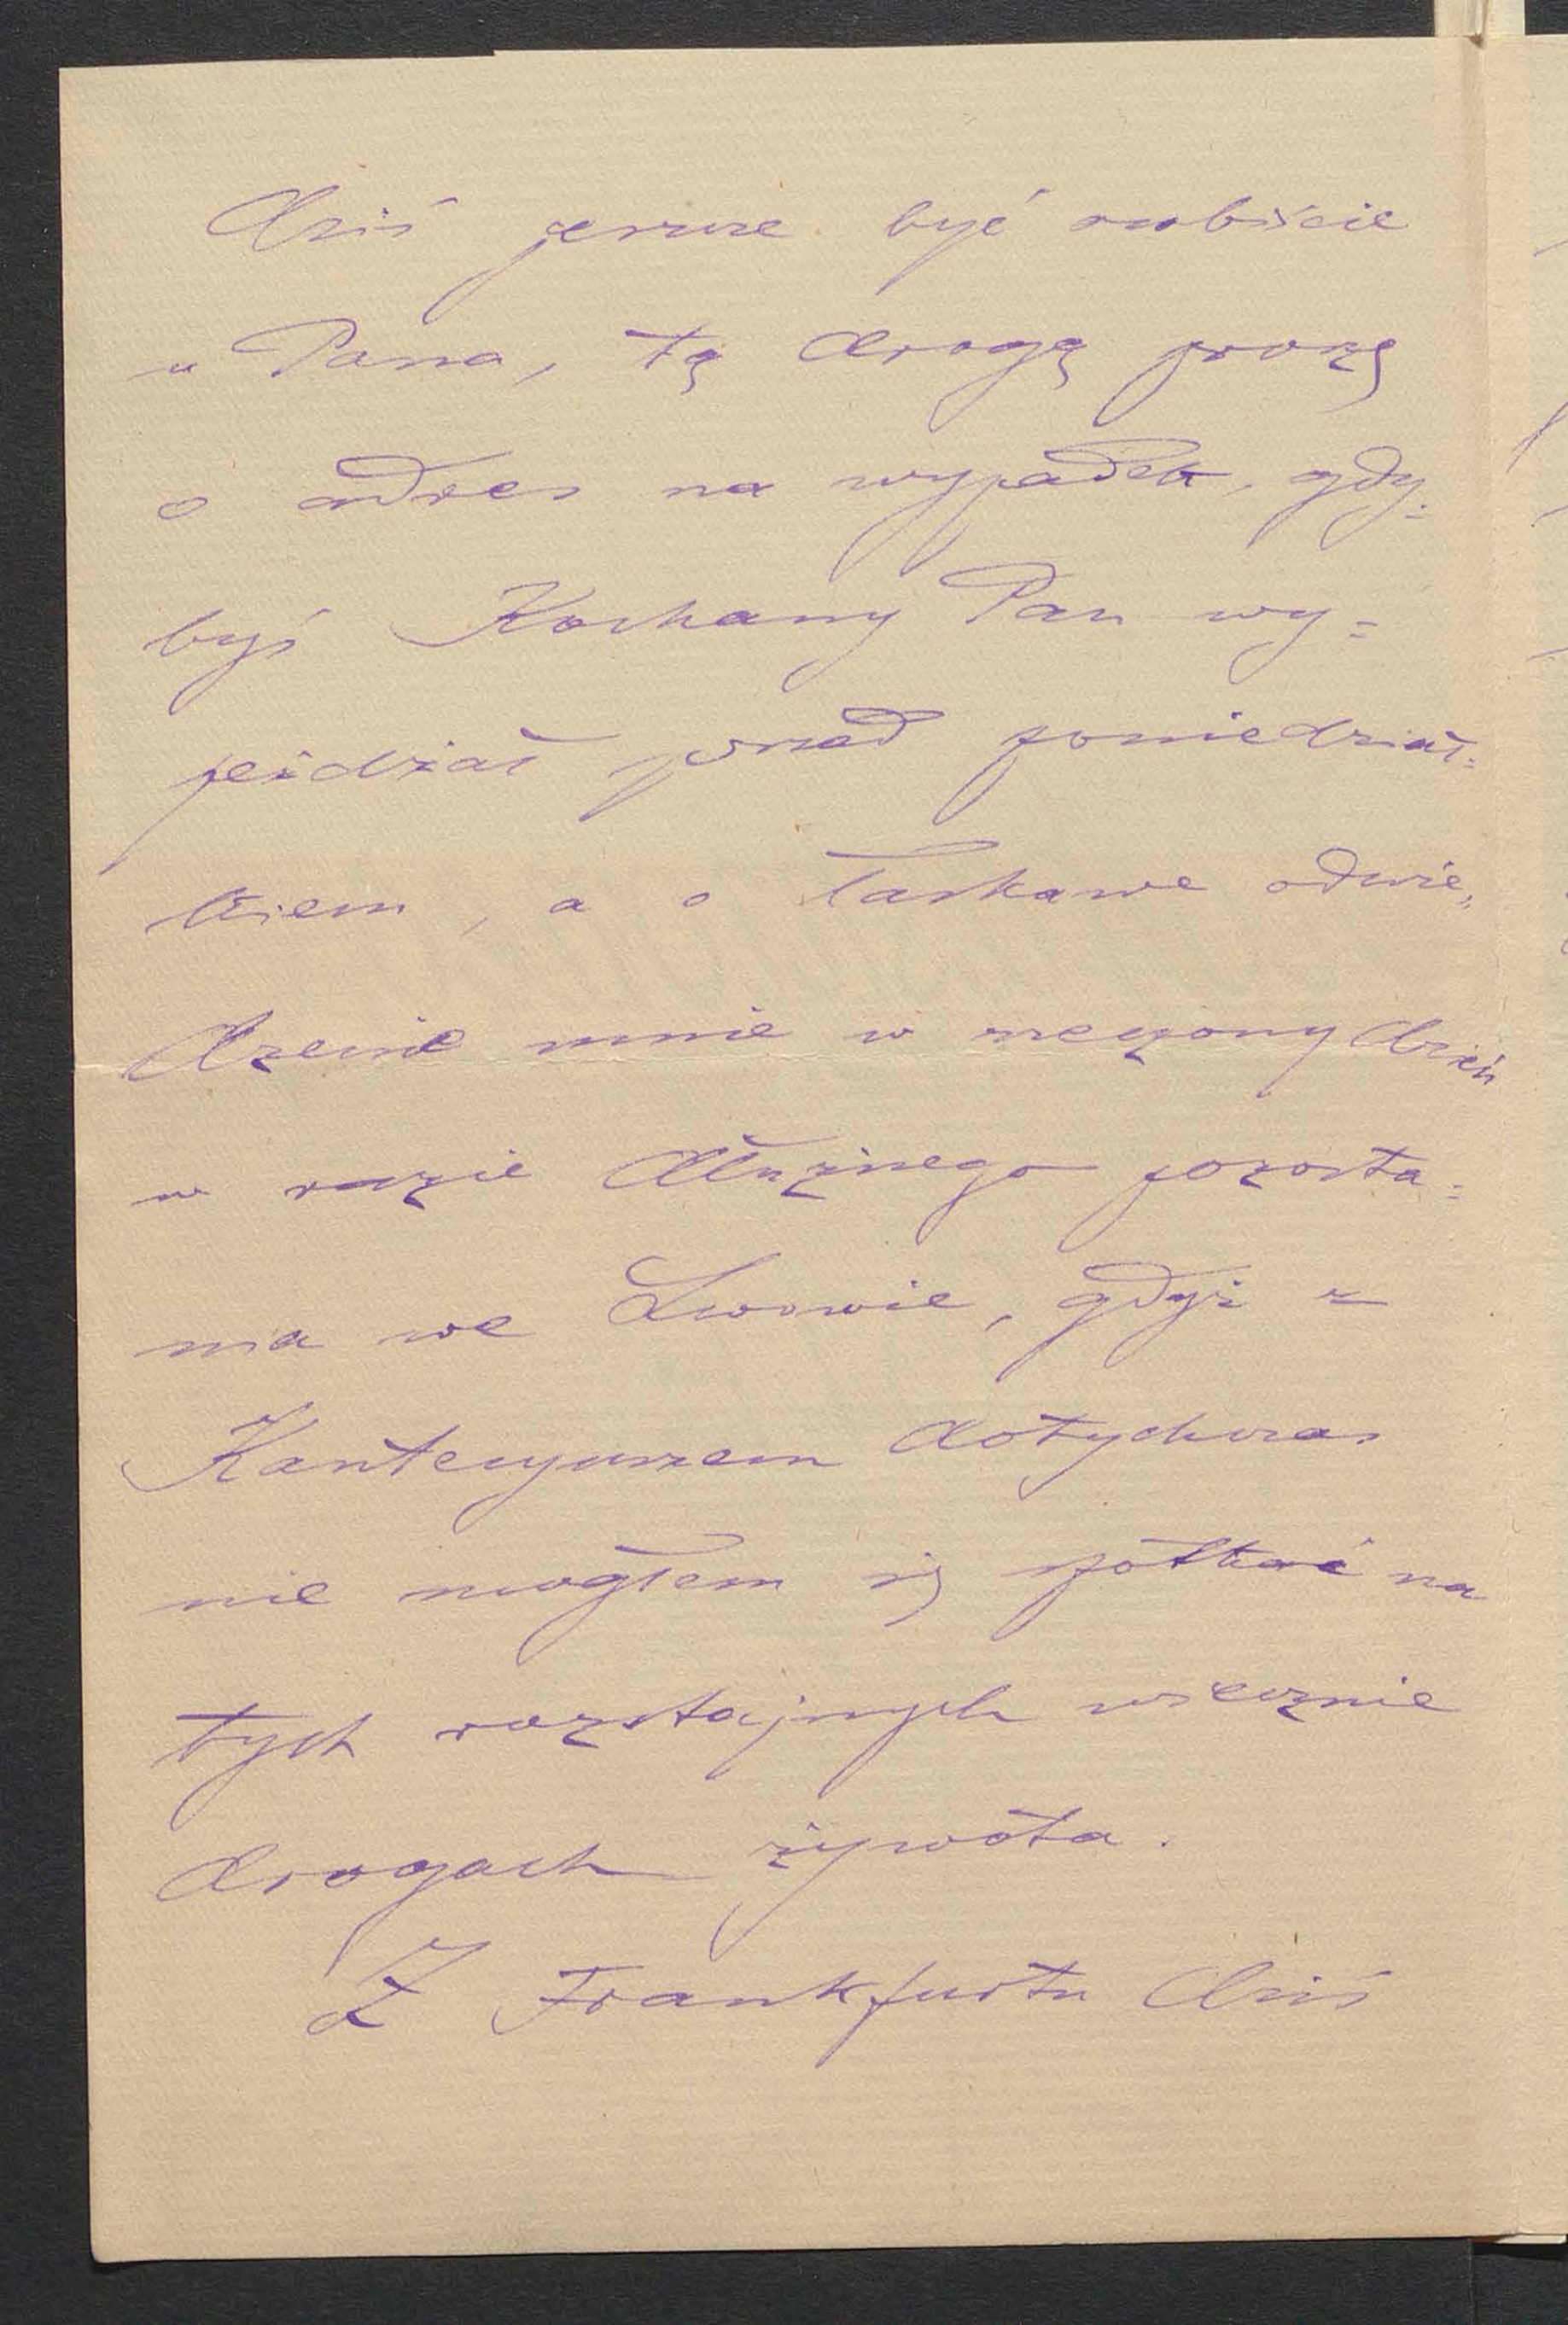 dziś jeszcze być osobiście
u Pana, tą drogą proszę
o adres na wypadek, gdy=
byś Kochany Pan wy=
jeżdżał przed poniedział=
kiem, a o łaskawe odwie„
dzenie mnie w rzeczony dzień
w razie dłuższego pozosta=
nia we Lwowie, gdyż z
Kanteryuszem dotychczas
nie mogłem się spotkać na
tych rozstajnych wiecznie
drogach żywota.
Z Frankfurtu dziś